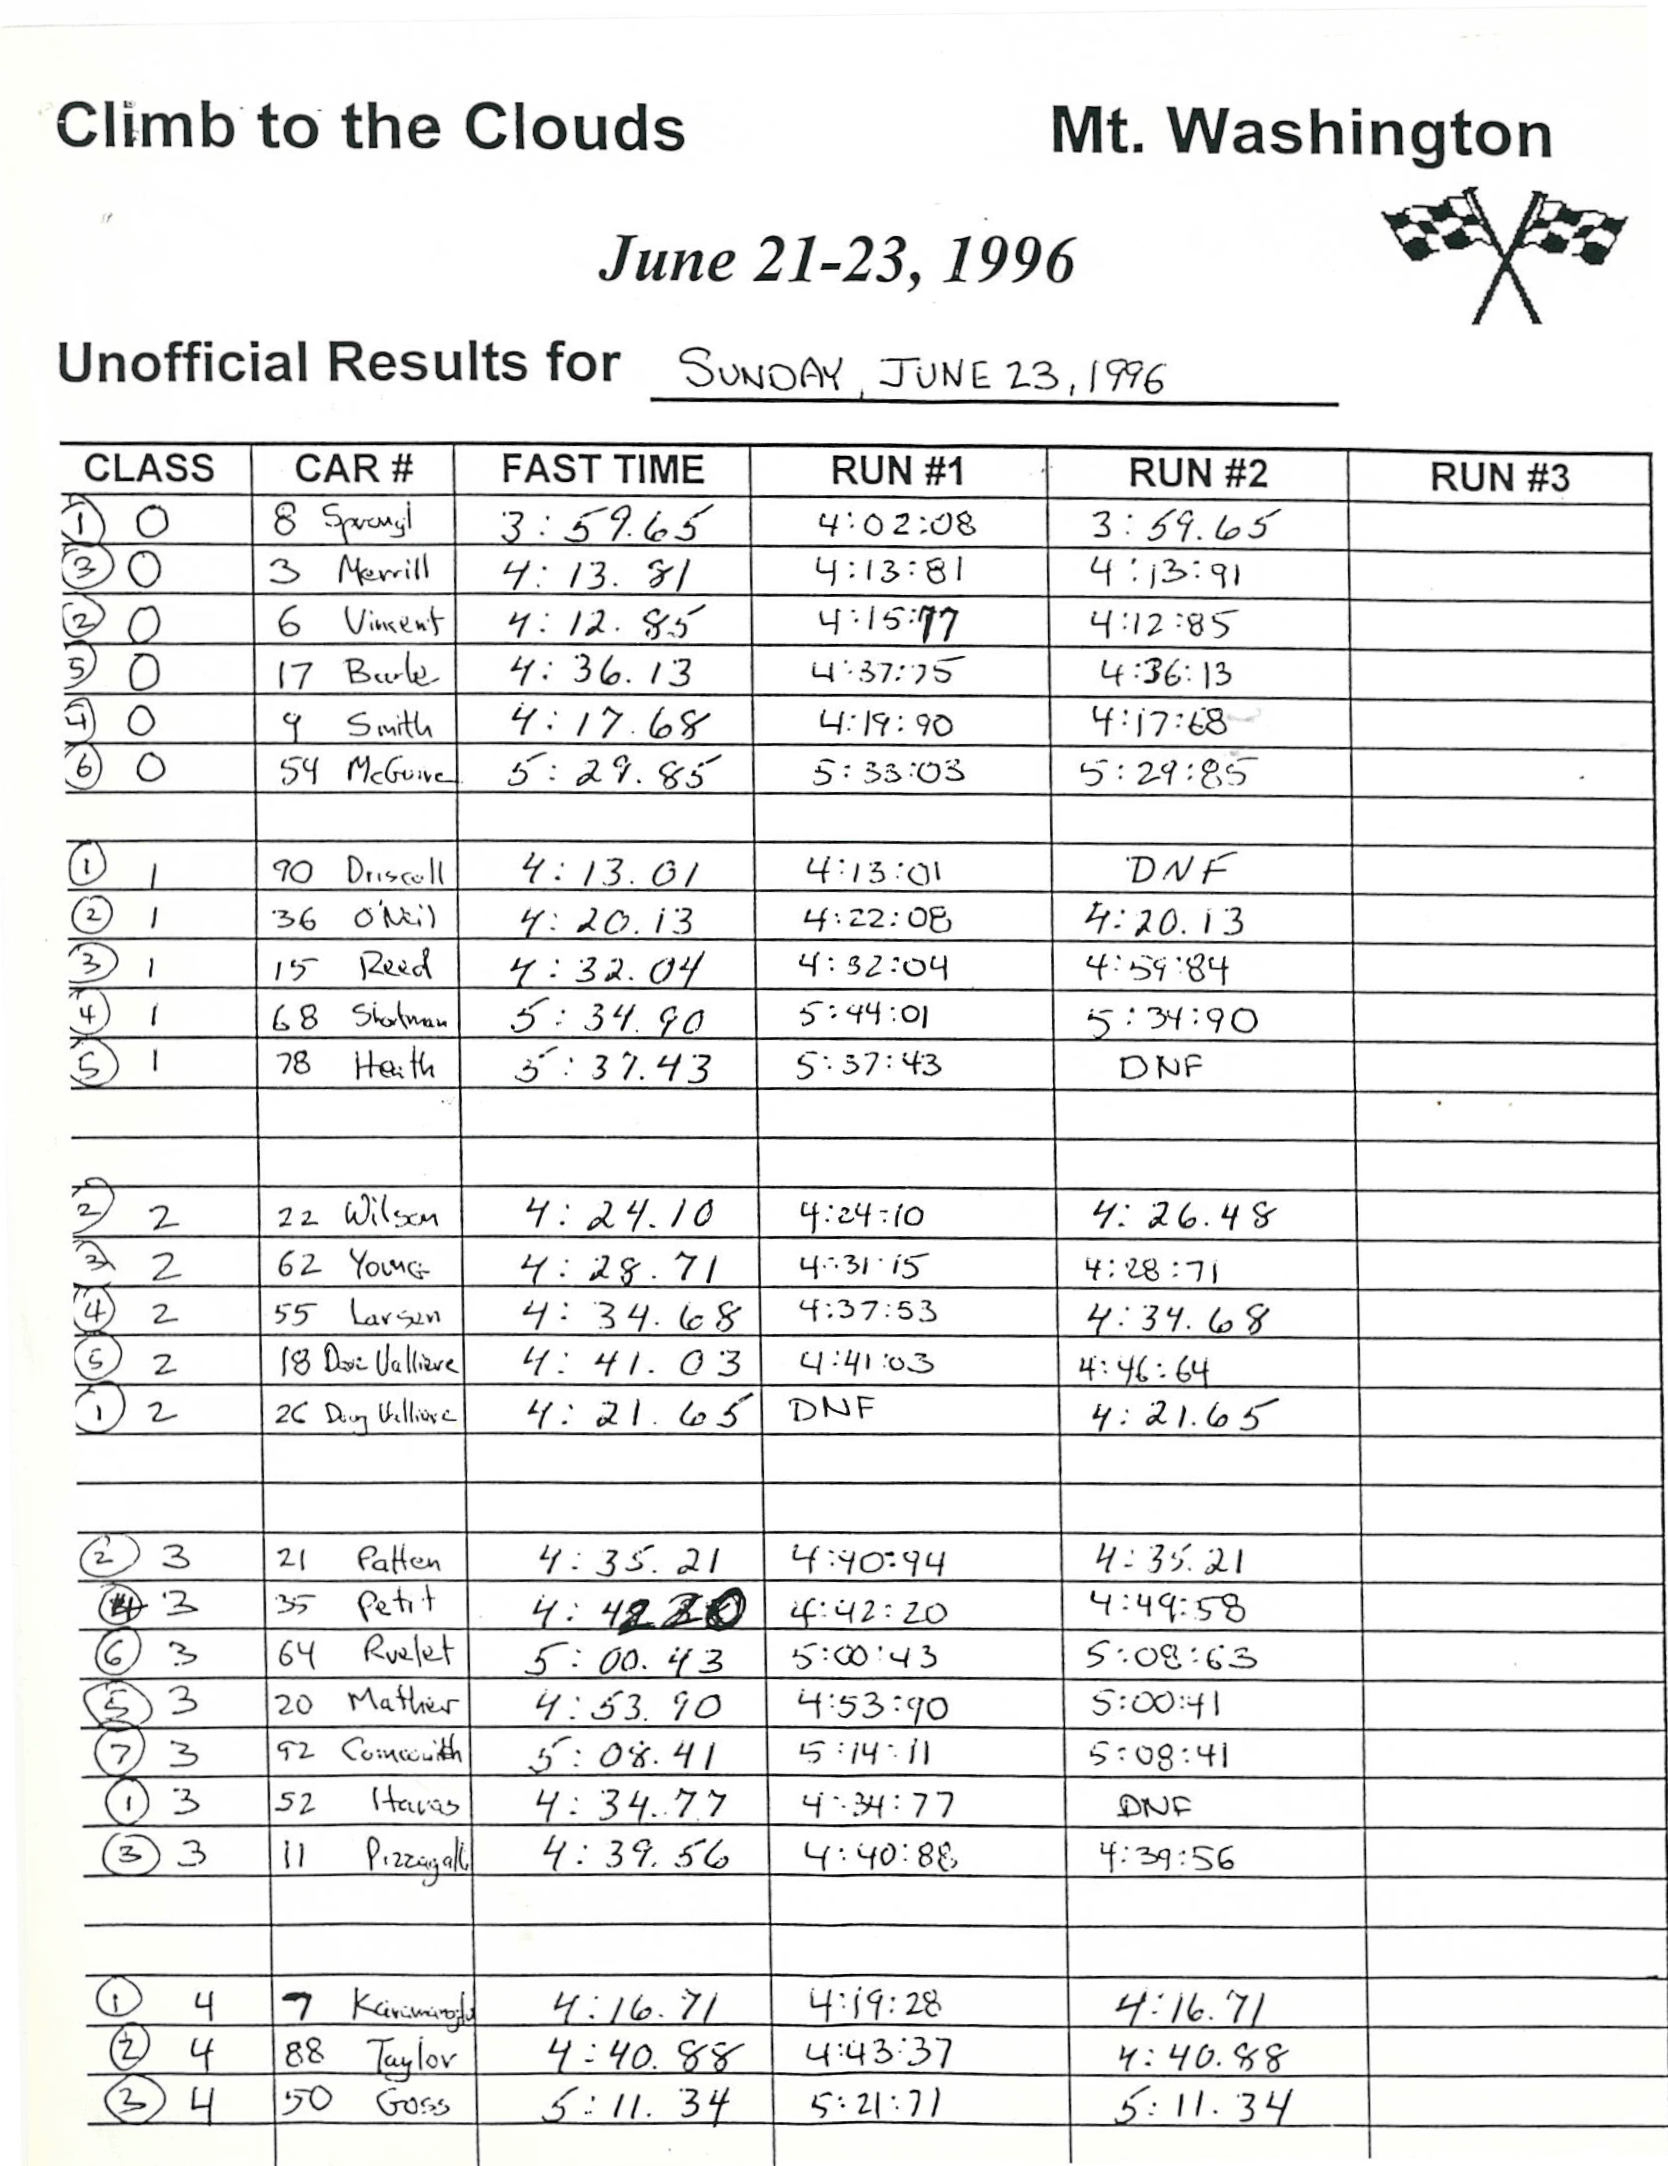 Climb to the Clouds Mt. Washington
June 21-23, 1996
Unofficial Results for SUNDAY, JUNE 23, 1996
CLASS CAR # FAST TIME RUN #1 RUN #2 RUN #3
1 0 8 3:59.65 4:02:08 3:59.65
3 0 3 Merrill 4:13.81 4:13:81 4:13:91
2 0 6 Vincent 4:12.85 4:15:77 4:12:85
5 0 17 4:36.13 4:37:75 4:36:13
4 0 9 Smith 4:17.68 4:19:90 4:17:68
6 0 54 McGuire 5:29.85 5:33:03 5:29:85
1 1 90 Driscoll 4:13.01 4:13:01 DNF
2 1 36 O'Neil 4:20.13 4:22:08 4:20.13
3 1 15 Reed 4:32.04 4:32:04 4:59:84
4 1 68 5:34.90 5:44:01 5:34:90
5 1 78 Heith 5:37.43 5:37:43 DNF
2 2 22 Wilson 4:24.10 4:24:10 4:26.48
3 2 62 Young 4:28.71 4:31:15 4:28:71
4 2 55 Larsen 4:34.68 4:37:53 4:34.68
5 2 18 Valliere 4:41.03 4:41:03 4:46:64
1 2 26 Doug Valliere 4:21.65 DNF 4:21.65
2 3 21 Patten 4:35.21 4:40:94 4:35.21
4 3 35 Petit 4:42.20 4:42:20 4:49:58
6 3 64 Ruelet 5:00.43 5:00:43 5:08:63
5 3 20 Mather 4:53.90 4:53:90 5:00:41
7 3 92 5:08.41 5:14:11 5:08:41
1 3 52 Havas 4:34.77 4:34:77 DNF
3 3 11 Pizzagalli 4:39.56 4:40:88 4:39:56
1 4 7 4:16.71 4:19:28 4:16.71
2 4 88 Taylor 4:40.88 4:43:37 4:40.88
3 4 50 Goss 5:11.34 5:21:71 5:11.34